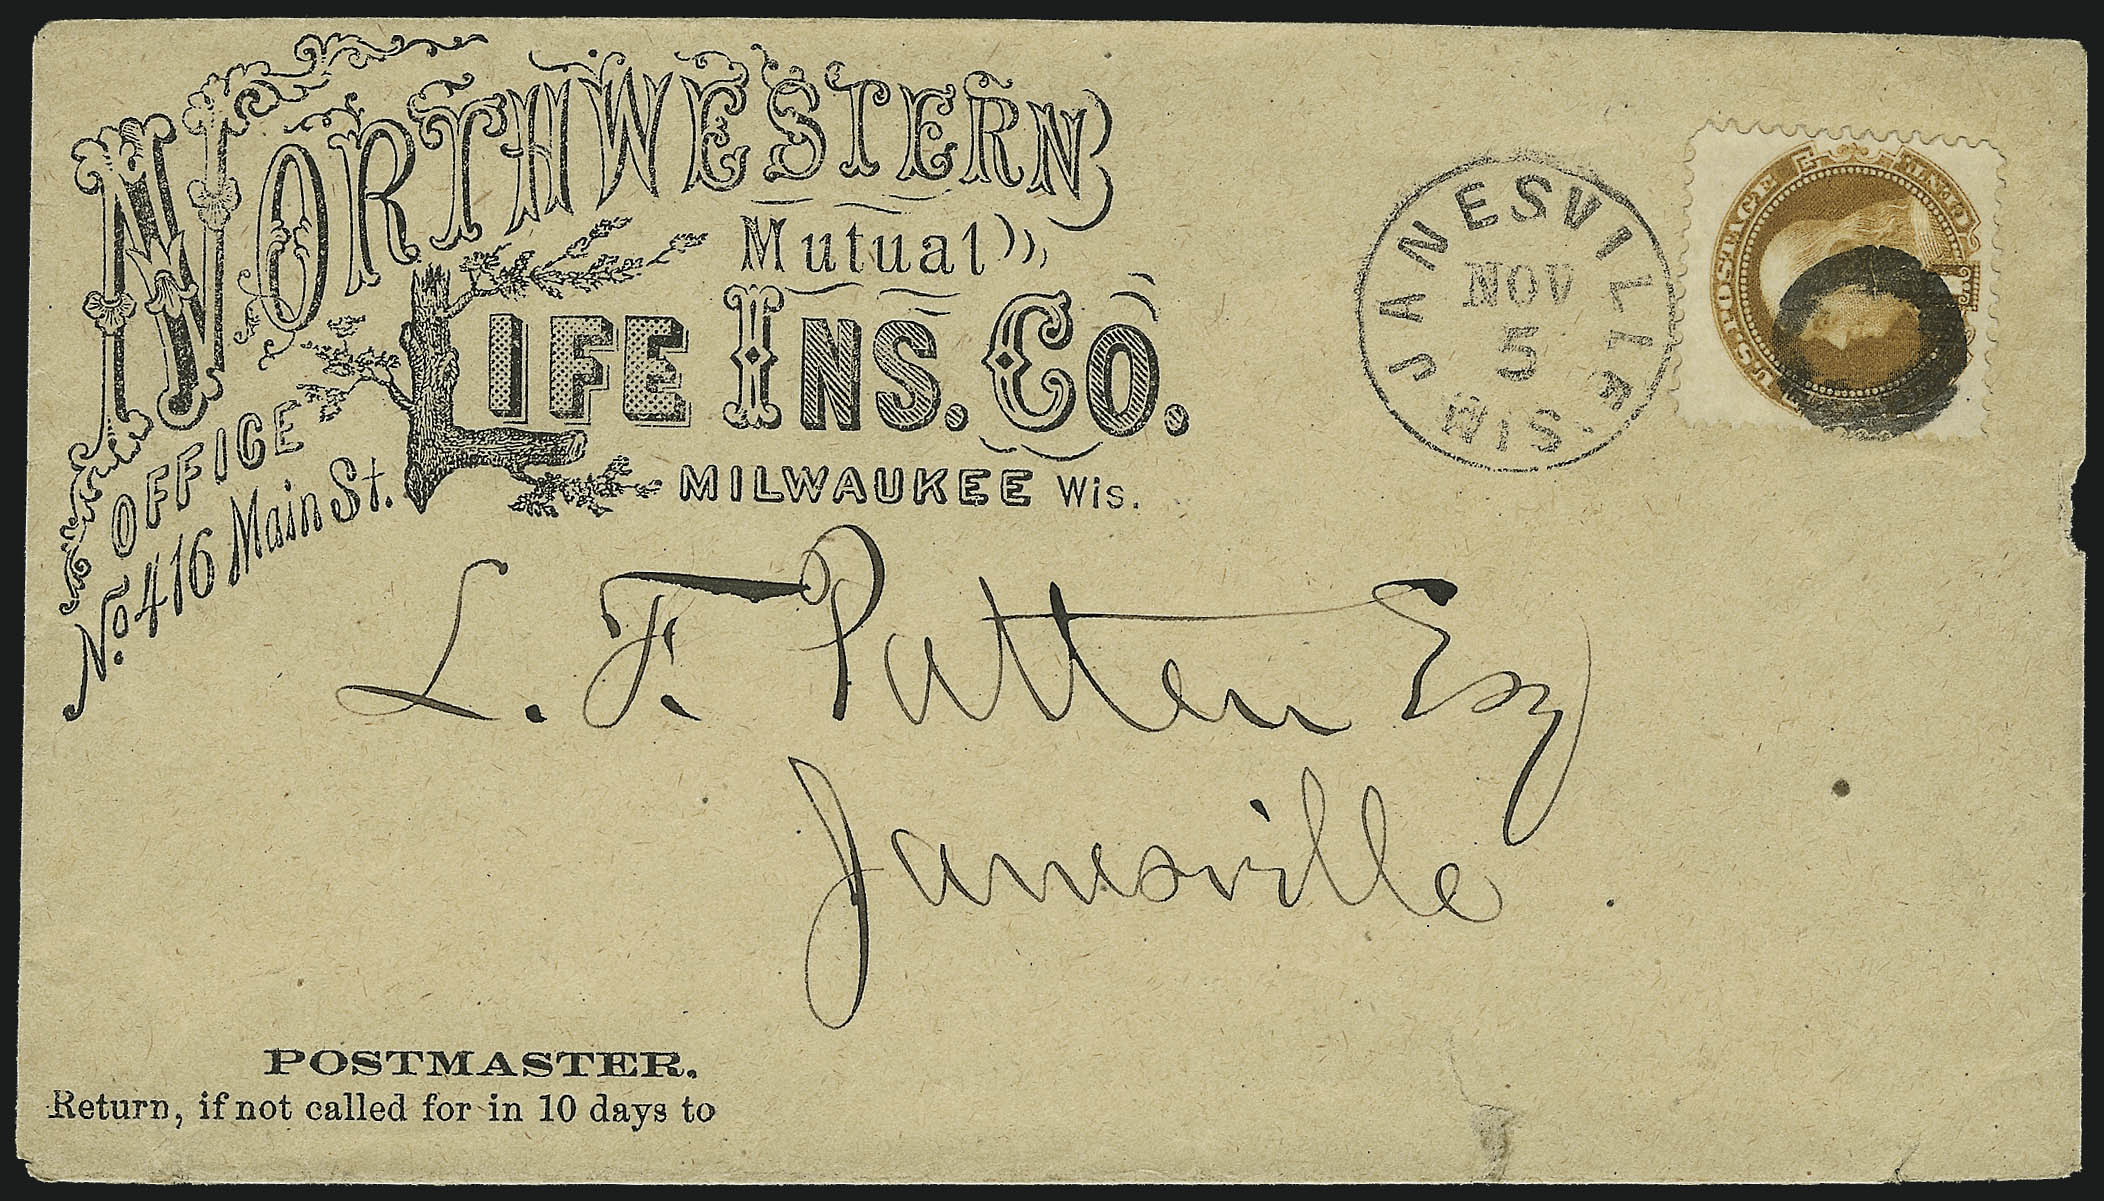 NORTHWESTERN
Mutual
LIFE INS. CO.
OFFICE
No. 416 Main St.
MILWAUKEE Wis.
JANESVILLE
NOV
5
WIS.
U.S. POSTAGE
L. F. Patten Esq
Janesville
POSTMASTER.
Return, if not called for in 10 days to